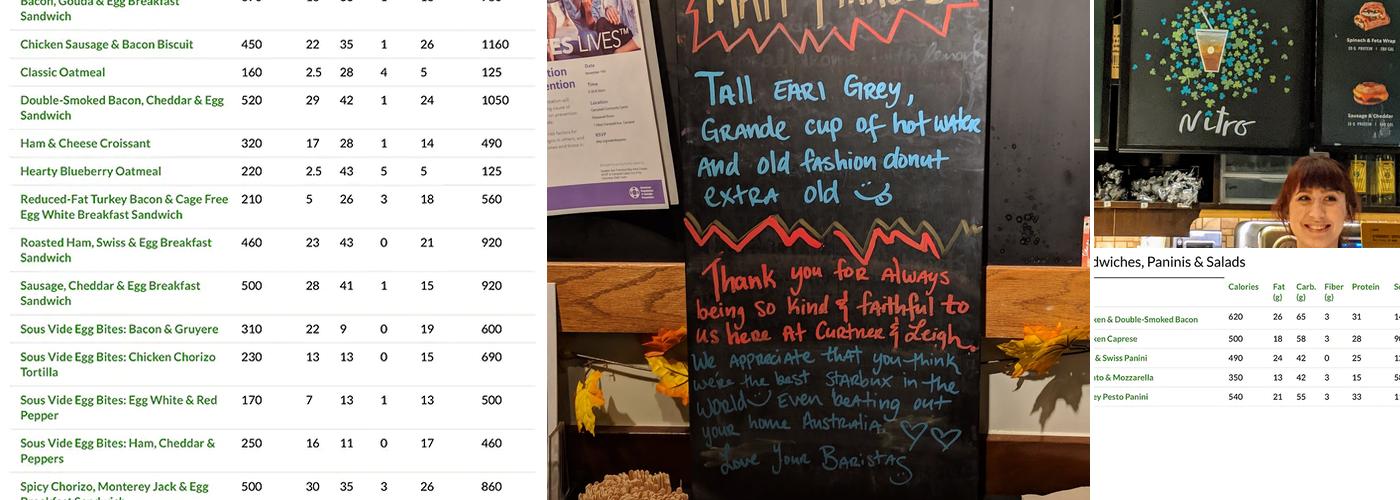 Bacon, Gouda & Egg Breakfast
Sandwich
Chicken Sausage & Bacon Biscuit 450 22 35 1 26 1160
Classic Oatmeal 160 2.5 28 4 5 125
Double-Smoked Bacon, Cheddar & Egg
Sandwich 520 29 42 1 24 1050
Ham & Cheese Croissant 320 17 28 1 14 490
Hearty Blueberry Oatmeal 220 2.5 43 5 5 125
Reduced-Fat Turkey Bacon & Cage Free
Egg White Breakfast Sandwich 210 5 26 3 18 560
Roasted Ham, Swiss & Egg Breakfast
Sandwich 460 23 43 0 21 920
Sausage, Cheddar & Egg Breakfast
Sandwich 500 28 41 1 15 920
Sous Vide Egg Bites: Bacon & Gruyere 310 22 9 0 19 600
Sous Vide Egg Bites: Chicken Chorizo
Tortilla 230 13 13 0 15 690
Sous Vide Egg Bites: Egg White & Red
Pepper 170 7 13 1 13 500
Sous Vide Egg Bites: Ham, Cheddar &
Peppers 250 16 11 0 17 460
Spicy Chorizo, Monterey Jack & Egg 500 30 35 3 26 860
LIVES™
Date
Time
Location
RSVP
Tall Earl Grey,
Grande cup of hot water
And old fashion donut
extra old
Thank you for always
being so kind & faithful to
us here At Curtner & Leigh.
We appreciate that you think
we're the best starbux in the
world Even beating out
your home Australia.
Love Your Baristas
Nitro
Spinach & Feta Wrap
Sausage & Cheddar
dwiches, Paninis & Salads
Calories Fat (g) Carb. (g) Fiber (g) Protein
ken & Double-Smoked Bacon 620 26 65 3 31
ken Caprese 500 18 58 3 28
& Swiss Panini 490 24 42 0 25
to & Mozzarella 350 13 42 3 15
ey Pesto Panini 540 21 55 3 33